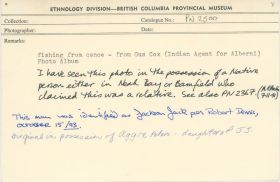 ETHNOLOGY DIVISION—BRITISH COLUMBIA PROVINCIAL MUSEUM
Collection Catalogue No.: PN 2500
Photographer: Date:
Remarks:
fishing from canoe - from Gus Cox (Indian Agent for Alberni)
Photo Album
I have seen this photo in the possession of a Native
person either in Neah Bay or Bamfield who
claimed this was a relative. See also PN 2367.
This man was identified as Jackson Jack per Robert Dennis,
October 15/93.
original in possession of Aggie Peters - daughter of J.J.